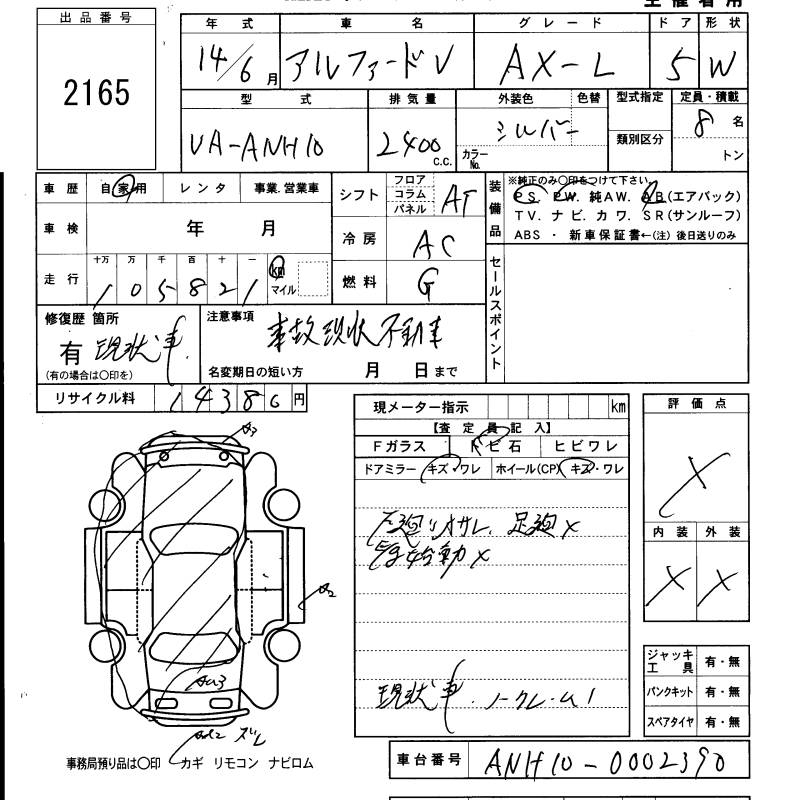 出品番号
2165
年式 車名 グレード ドア 形状
14/6月 アルファードV AX-L 5 W
型式 排気量 外装色 色替 型式指定 定員・積載
UA-ANH10 2400 c.c. シルバー カラーNo. 類別区分 8名
トン
車歴 自家用 レンタ 事業.営業車
車検 年 月
走行 十万 万 千 百 十 一
105821 km マイル
シフト フロア コラム パネル AT
冷房 AC
燃料 G
装備品
※純正のみ○印をつけて下さい。
PS. PW. 純AW. AB(エアバック)
TV. ナビ. カワ. SR(サンルーフ)
ABS ・ 新車保証書←(注) 後日送りのみ
セールスポイント
修復歴 箇所
有 現状車.
(有の場合は○印を)
注意事項 事故現状 不動車
名変期日の短い方 月 日まで
リサイクル料 14386円
現メーター指示 km
【査定員記入】
Fガラス トビ石 ヒビワレ
ドアミラー キズ・ワレ ホイール(CP) キズ・ワレ
足廻 x
始動 x
現状車. ノークレーム!
評価点
X
内装 外装
X X
ジャッキ工具 有・無
パンクキット 有・無
スペアタイヤ 有・無
A3
A2
ズレ
事務局預り品は○印 カギ リモコン ナビロム
車台番号 ANH10-0002390